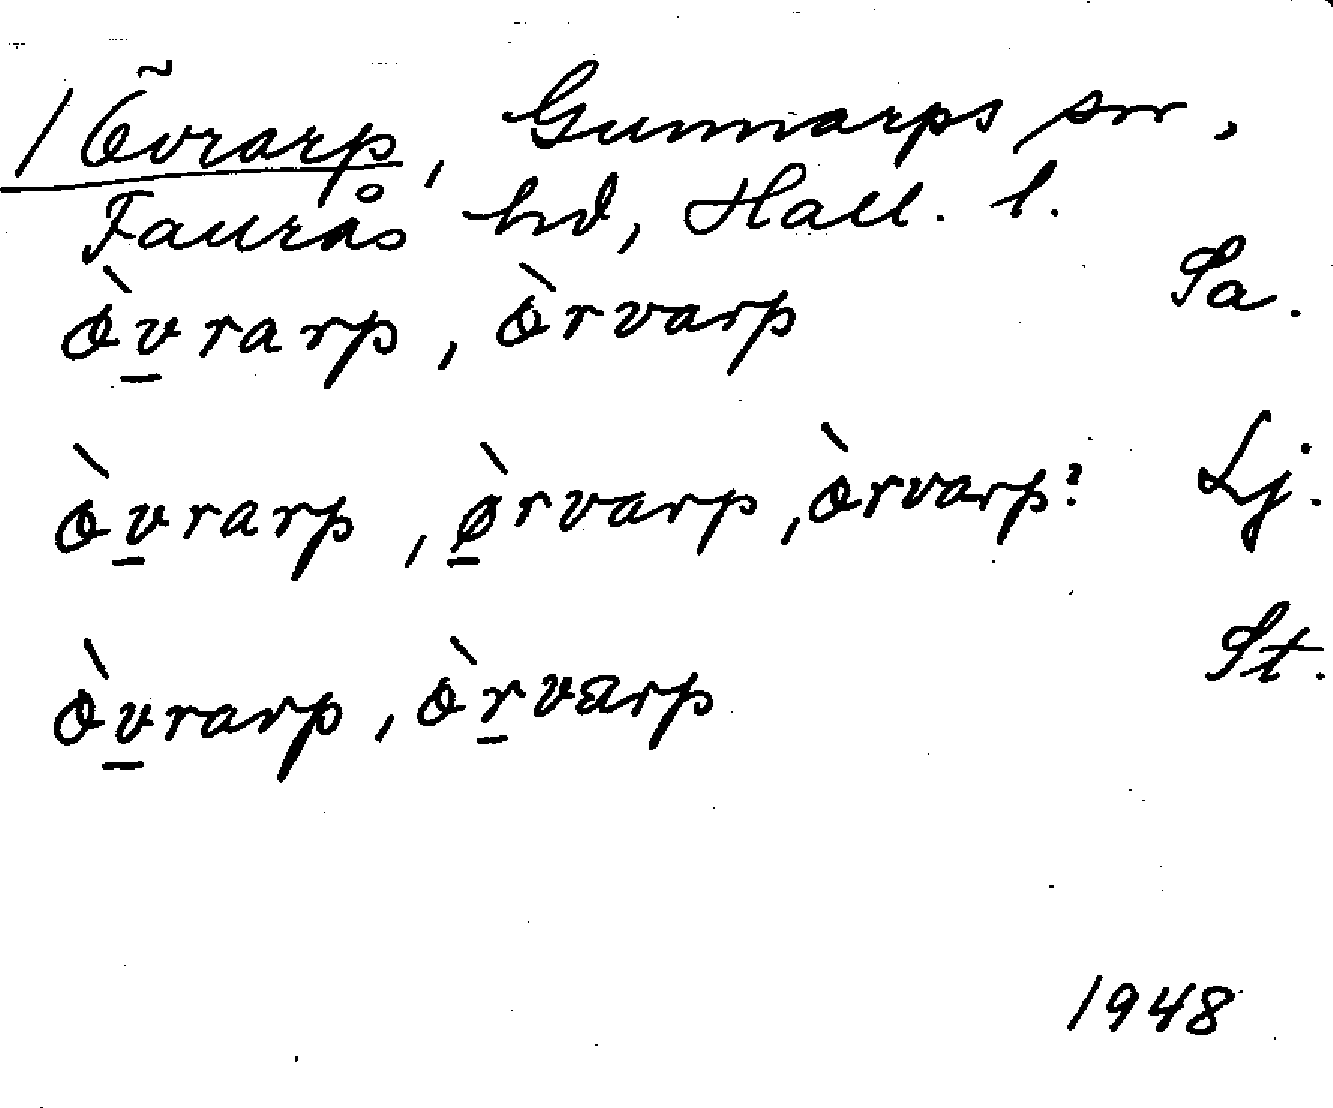 1 Övrarp, Gunnarps sn,
Faurås hd, Hall. l.
ò̀v̲rarp, ò̀rvarp Sa.
ò̀v̲rarp, ø̲̀rvarp, ò̀rvarp? Lj.
ò̀v̲rarp, ò̀r̲varp St.
1948